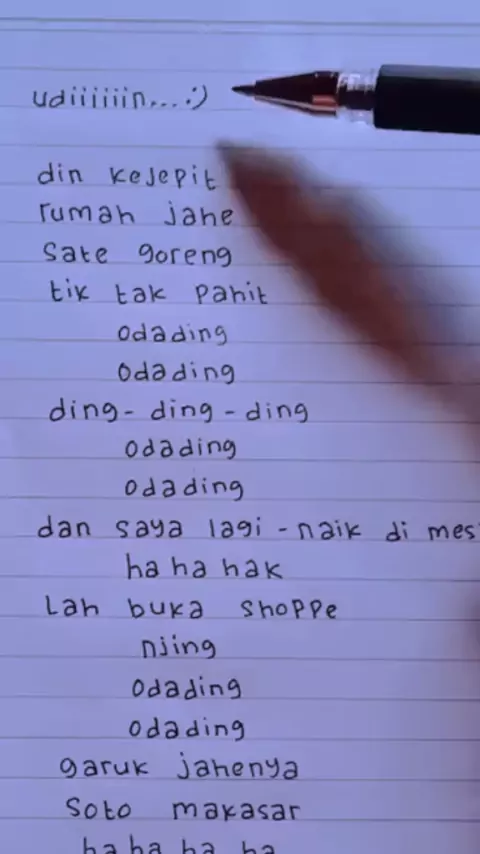 udiiiiiin... :)
din kejepit
rumah jahe
sate goreng
tik tak pahit
odading
odading
ding - ding - ding
odading
odading
dan saya lagi - naik di mes
ha ha hak
Lah buka shoppe
njing
odading
odading
garuk jahenya
Soto makasar
ha ha ha ha